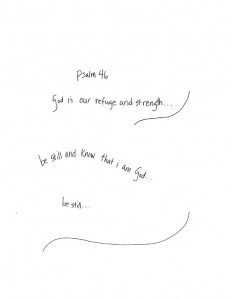 Psalm 46
God is our refuge and strength...
be still and know that i am God...
be still...